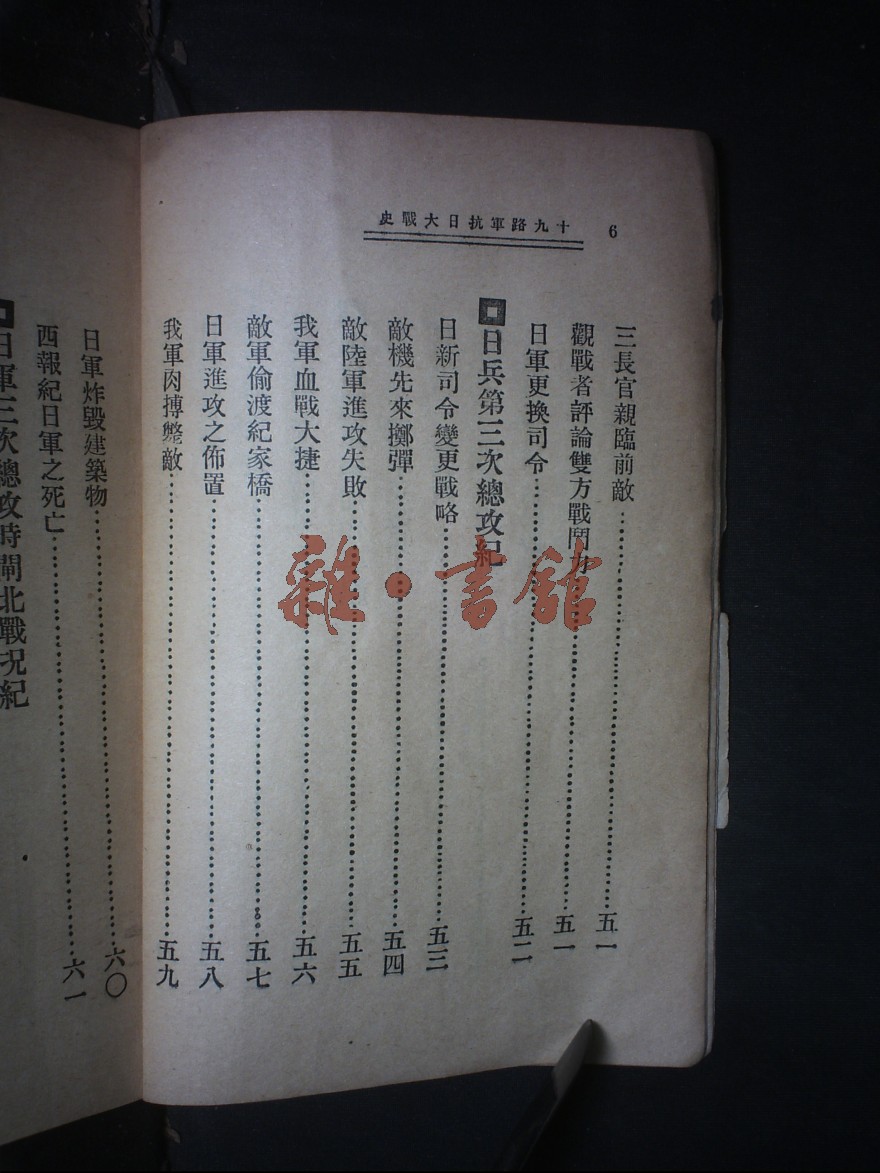 十九路軍抗日大戰史
6
三長官親臨前敵……五一
觀戰者評論雙方戰鬥力……五一
日軍更換司令……五二
日兵第三次總攻紀
日新司令變更戰略……五三
敵機先來擲彈……五四
敵陸軍進攻失敗……五五
我軍血戰大捷……五六
敵軍偷渡紀家橋……五七
日軍進攻之佈置……五八
我軍肉搏斃敵……五九
日軍炸毀建築物……六〇
西報紀日軍之死亡……六一
日軍三次總攻時閘北戰況紀
雜·書館